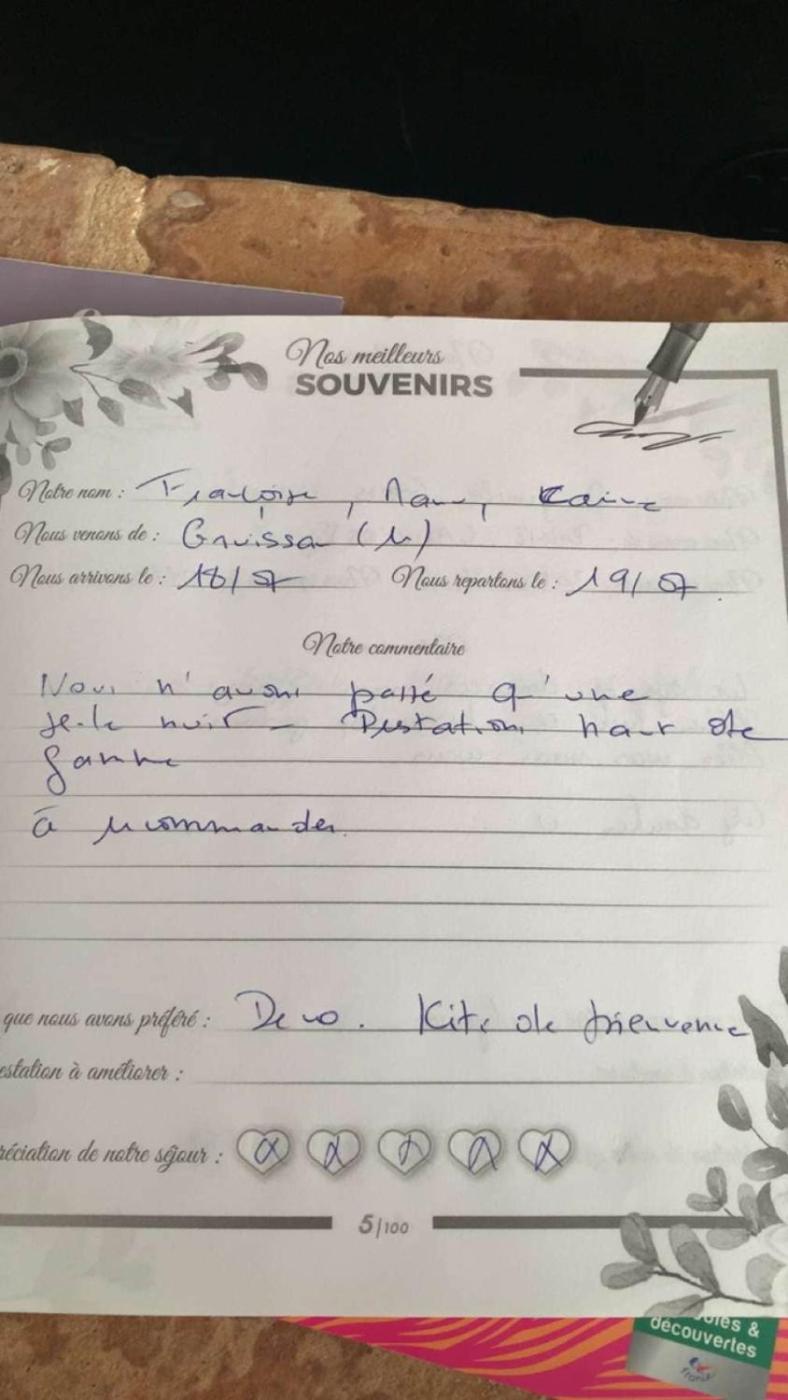 Nos meilleurs
SOUVENIRS
Notre nom : Françoise,
Nous venons de : Gruissan
Nous arrivons le : 18/07 Nous repartons le : 19/07
Notre commentaire
Nous n'avons passé q'une
seule nuit - Prestations haut de
gamme
à recommander.
que nous avons préféré : Deco. Kits de bienvenue
estation à améliorer :
réciation de notre séjour :
5/100
découvertes